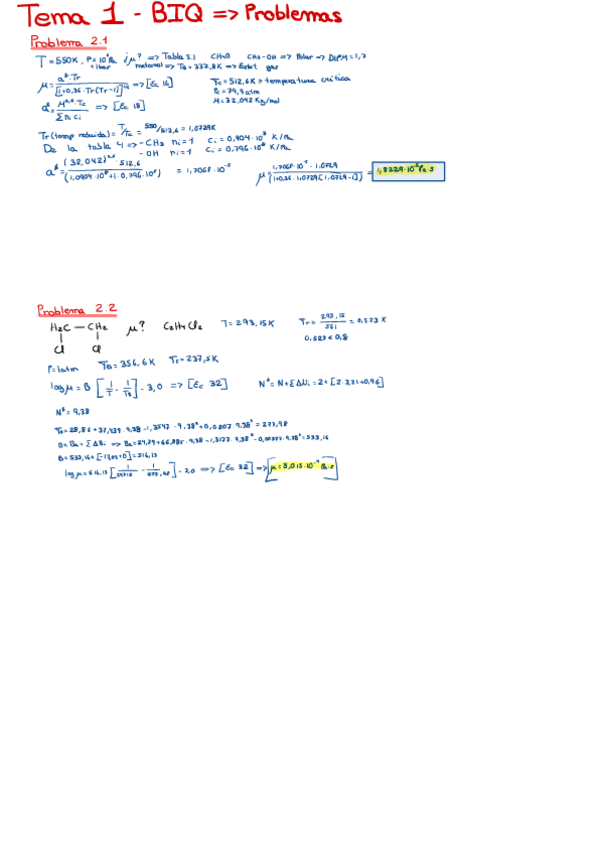 Tema 1 - BIQ => Problemas
Problema 2.1
T = 550K, P = 10⁵Pa ¿μ? => Tabla 5.1 CH₄O CH₃-OH => Polar => DIPM = 1,7
= 1bar metanol => Tb = 337,8K => Est? gas
μ = a*·Tr / [1+0,36·Tr(Tr-1)]^1/6 => [Ec 16]
Tc = 512,6K => temperatura crítica
Pc = 79,9 atm
M = 32,042 Kg/mol
a* = M^0,5·Tc / Σni Ci => [Ec 18]
Tr (temp reducida) = T/Tc = 550/512,6 = 1,0729K
De la tabla 4 => -CH₃ ni=1 Ci = 0,904·10⁸ K/Pa
-OH ni=1 Ci = 0,796·10⁸ K/Pa
a* = (32,042)^0,5·512,6 / (1·0904·10⁸+1·0,796·10⁸) = 1,7068·10⁻⁵
μ = 1,7068·10⁻⁵·1,0729 / (1+0,36·1,0729(1,0729-1)) = 1,8229·10⁻⁵Pa·s
Problema 2.2
H₂C — CH₂ μ? C₂H₄Cl₂ T = 293,15K Tr = 293,15/561 = 0,523 K
Cl Cl 0,523 < 0,8
P = 1atm Tb = 356,6K Tf = 237,5K
log μ = B [1/T - 1/T₀] - 3,0 => [Ec 32] N* = N+ΣΔNi = 2+[2·3,21+0,96]
N* = 9,38
T₀ = 28,86+37,439·9,38-1,3547·9,38²+0,0207·9,38³ = 277,98
B = Ba + ΣΔBi => Ba = 24,79+66,885·9,38-1,3173·9,38²-0,00377·9,38³ = 533,16
B = 533,16+[-17,03+0] = 516,13
log μ = 516,13 [1/293,15 - 1/277,98] - 3,0 => [Ec 32] => [μ = 8,015·10⁻⁴ Pa·s]